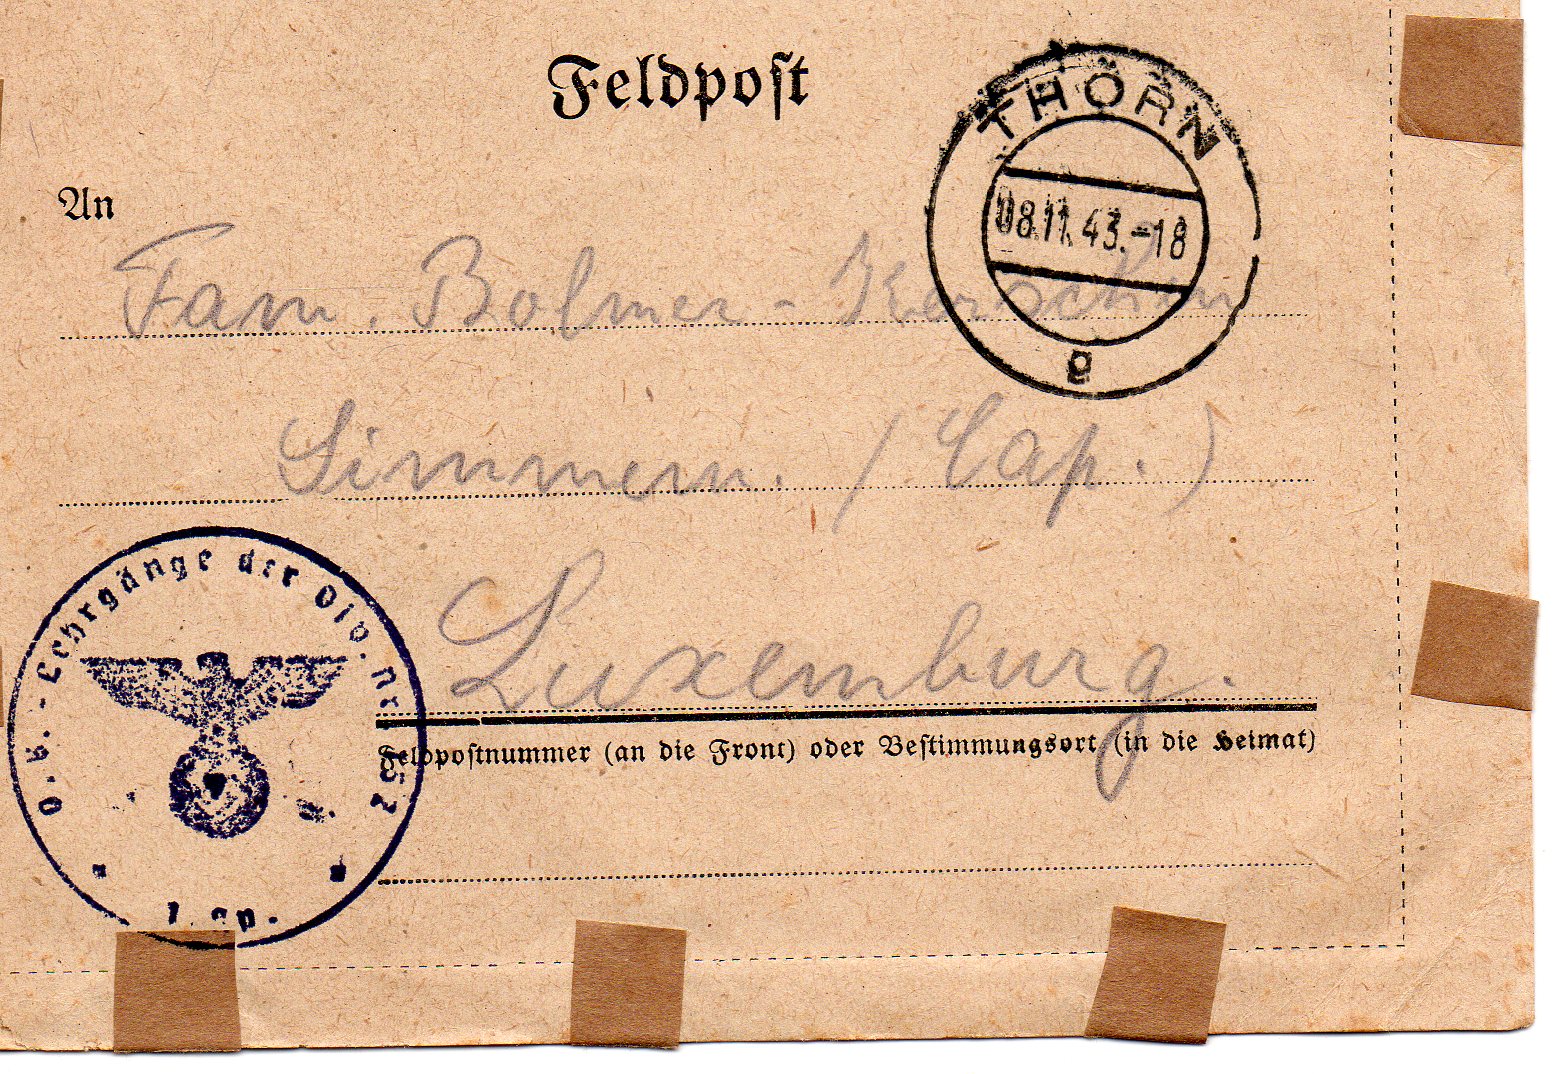 Feldpost
THORN
08.11.43.-18
g
An
Fam. Bolmer - Kerschen
Simmern. (Cap.)
Luxemburg.
Feldpostnummer (an die Front) oder Bestimmungsort (in die Heimat)
Lehrgänge der Div. Nr.